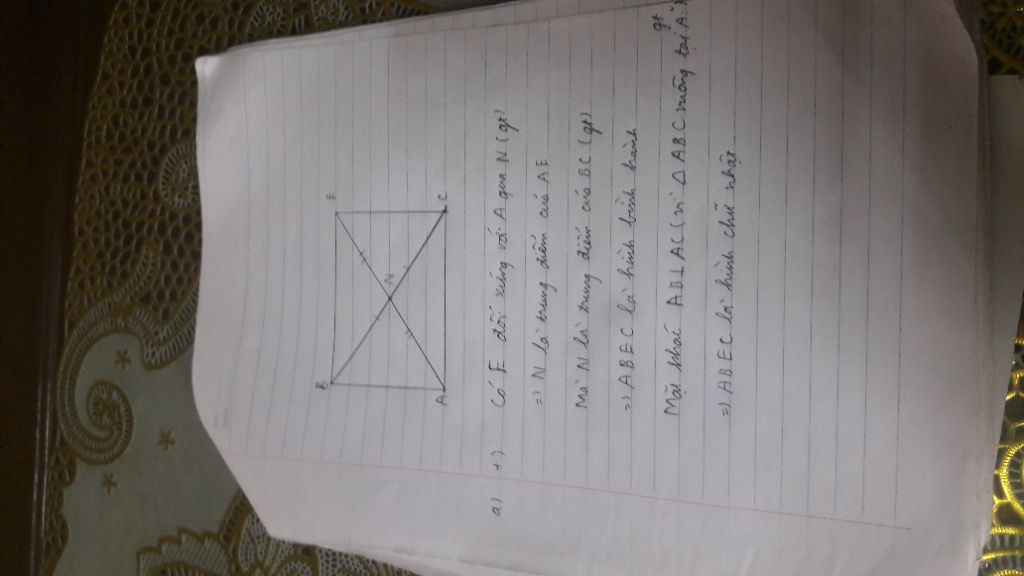 B
E
N
A
C
a) +) Có E đối xứng với A qua N (gt)
=) N là trung điểm của AE
Mà N là trung điểm của BC (gt)
=) ABEC là hình bình hành
gt
Mặt khác AB⊥AC (vì Δ ABC vuông tại A
=) ABEC là hình chữ nhật